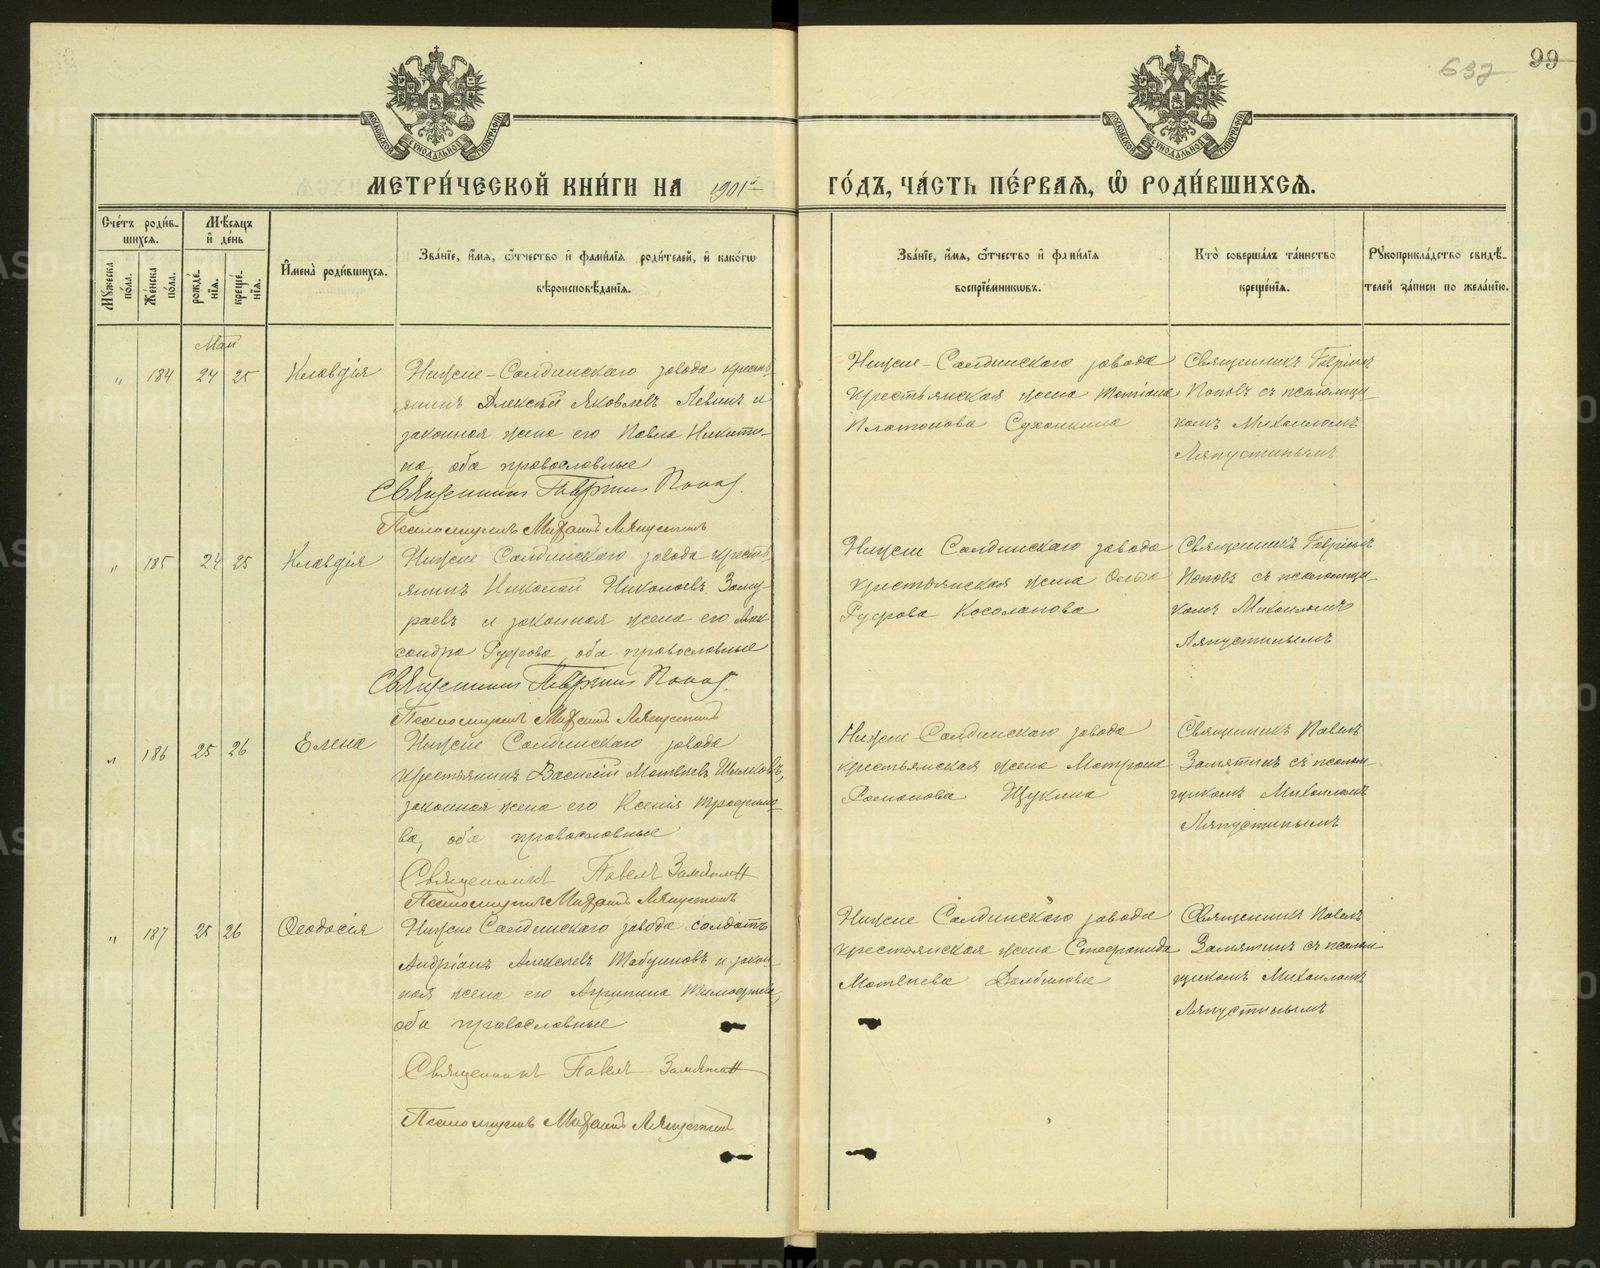 637 99
МЕТРИ́ЧЕСКОЙ КНИ́ГИ НА 1901й ГО́ДЪ, ЧА́СТЬ ПЕ́РВАѦ, Ѡ҆ РОДИ́ВШИХСѦ.
Сче́тъ роди́в-
шихсѧ.
Мѣ́сѧцъ
и҆ де́нь
Мꙋ́жеска по́ла.
Же́нска по́ла.
рожде́нїѧ.
креще́нїѧ.
И҆мена̀ роди́вшихсѧ.
Зва́нїе, и҆́мѧ, ѻ҆́тчество и҆ фами́лїѧ роди́телей, и҆ како́гѡ
вѣроисповѣ́данїѧ.
Зва́нїе, и҆́мѧ, ѻ҆́тчество и҆ фами́лїѧ
воспрїе́мникѡвъ.
Кто̀ соверша́лъ та́инство
креще́нїѧ.
Рꙋкоприкла́дство свидѣ́-
телей за́писи по жела́нїю.
Май
" 184 24 25 Клавдія
Нижне-Салдинскаго завода кресть-
янинъ Алексѣй Яковлевъ Левинъ и
законная жена его Павла Никити-
на, оба православные
Священникъ Гавріилъ Поповъ.
Псаломщикъ Михаилъ Ляпустинъ
Нижне-Салдинскаго завода
крестьянская жена Татіана
Платонова Сухонкина
Священникъ Гавріилъ
Поповъ съ псаломщи-
комъ Михаиломъ
Ляпустинымъ
" 185 24 25 Клавдія
Нижне Салдинскаго завода кресть-
янинъ Николай Николаевъ Заму-
раевъ и законная жена его Алек
сандра Руфова, оба православные
Священникъ Гавріилъ Поповъ.
Псаломщикъ Михаилъ Ляпустинъ
Нижне Салдинскаго завода
крестьянская жена
Руфова Косолапова
Священникъ Гавріилъ
Поповъ съ псаломщи-
комъ Михаиломъ
Ляпустинымъ
" 186 25 26 Елена
Нижне Салдинскаго завода
крестьянинъ Василій Матвѣевъ
законная жена его Ксенія Трофимо-
ва, оба православные
Священникъ Павелъ Замятин
Псаломщикъ Михаилъ Ляпустинъ
Нижне Салдинскаго завода
крестьянская жена Матрона
Романова Щукина
Священникъ Павелъ
Замятинъ съ псалом-
щикомъ Михаиломъ
Ляпустинымъ
" 187 25 26 Ѳеодосія
Нижне Салдинскаго завода солдатъ
Андріанъ Алексѣевъ Табуновъ и закон
ная жена его Агрипина Тимофѣева,
оба православные
Священникъ Павелъ Замятин
Псаломщикъ Михаилъ Ляпустинъ
Нижне Салдинскаго завода
крестьянская жена Стефанида
Матвѣева Долбилова
Священникъ Павелъ
Замятинъ съ псалом-
щикомъ Михаиломъ
Ляпустинымъ
METRIKI.GASO-URAL.RU